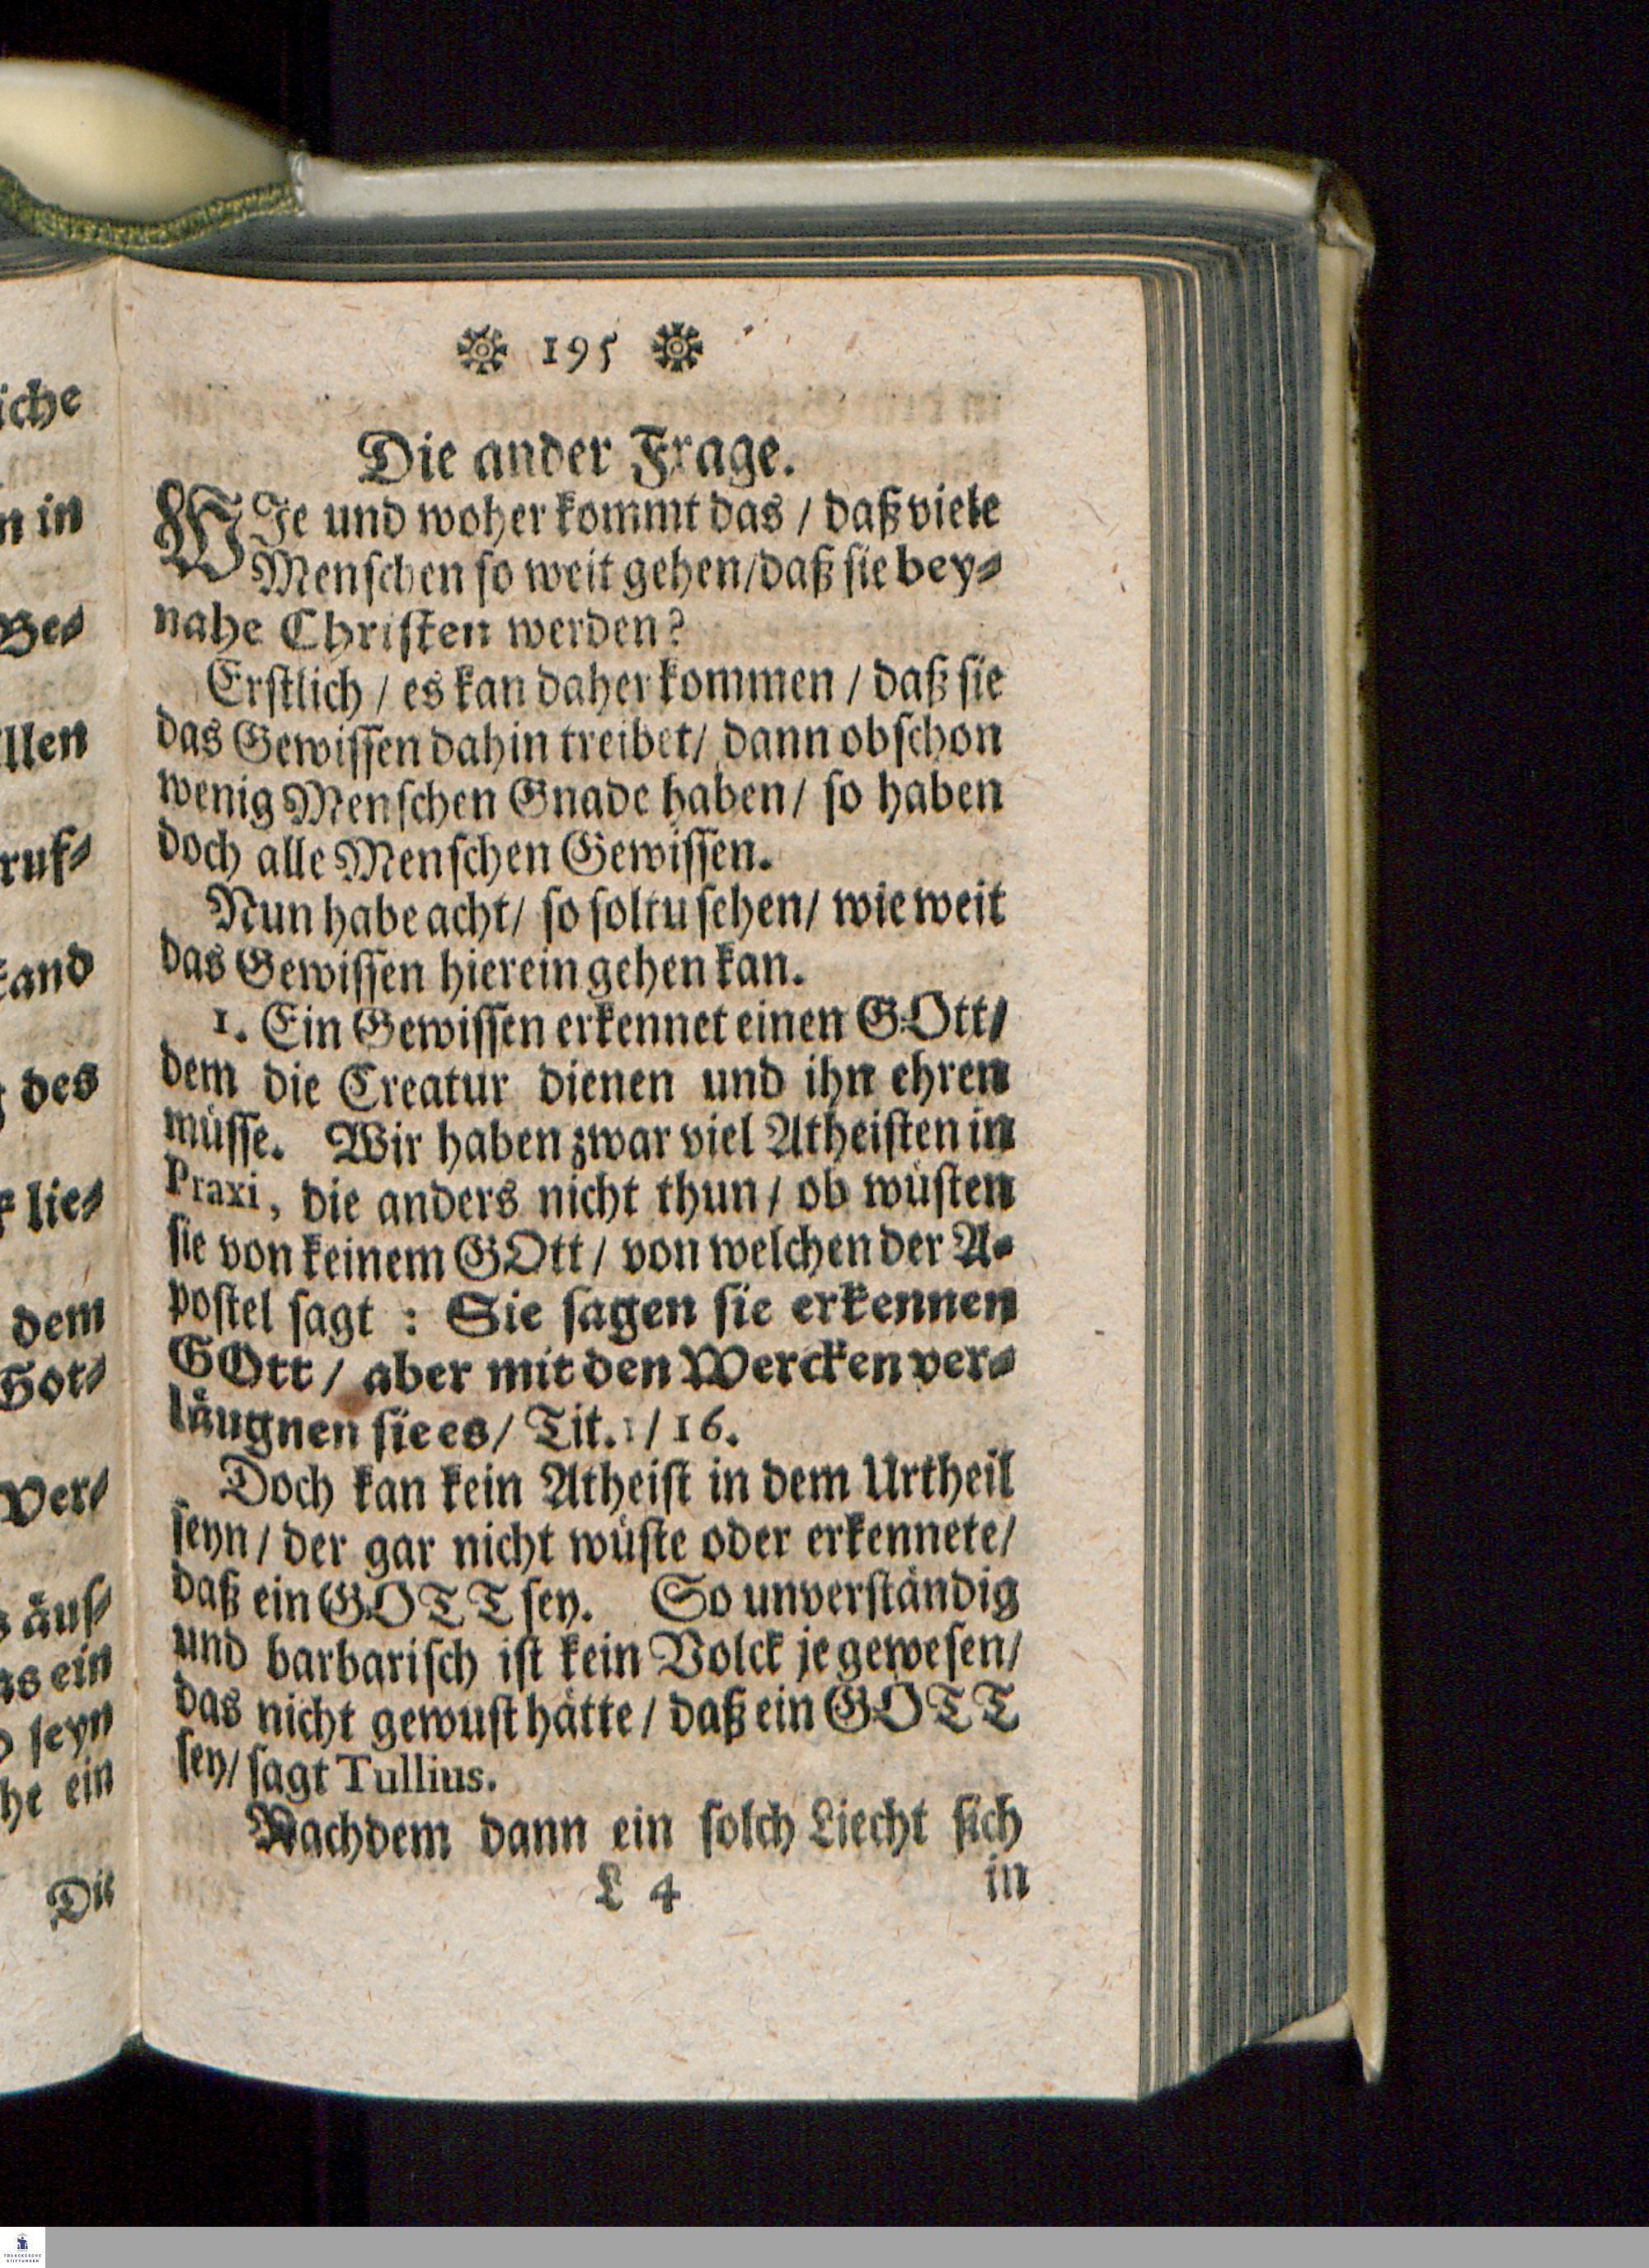 iche
n in
Be⸗
llen
ruf⸗
tand
des
lie⸗
dem
Got⸗
Ver⸗
äus⸗
as ein
seyn
he ein
Die
195
Die ander Frage.
WIe und woher kommt das / daß viele
Menschen so weit gehen/daß sie bey⸗
nahe Christen werden?
Erstlich / es kan daher kommen / daß sie
das Gewissen dahin treibet/ dann obschon
wenig Menschen Gnade haben/ so haben
doch alle Menschen Gewissen.
Nun habe acht/ so soltu sehen/ wie weit
das Gewissen hierein gehen kan.
1. Ein Gewissen erkennet einen GOtt/
dem die Creatur dienen und ihn ehren
müsse. Wir haben zwar viel Atheisten in
Praxi, die anders nicht thun / ob wüsten
sie von keinem GOtt / von welchen der A⸗
postel sagt : Sie sagen sie erkennen
GOtt / aber mit den Wercken ver⸗
läugnen sie es/ Tit. 1/ 16.
Doch kan kein Atheist in dem Urtheil
seyn / der gar nicht wüste oder erkennete/
daß ein GOTT sey. So unverständig
und barbarisch ist kein Volck je gewesen/
das nicht gewust hätte / daß ein GOTT
sey/ sagt Tullius.
Nachdem dann ein solch Liecht sich
L 4
in
FRANCKESCHE
STIFTUNGEN